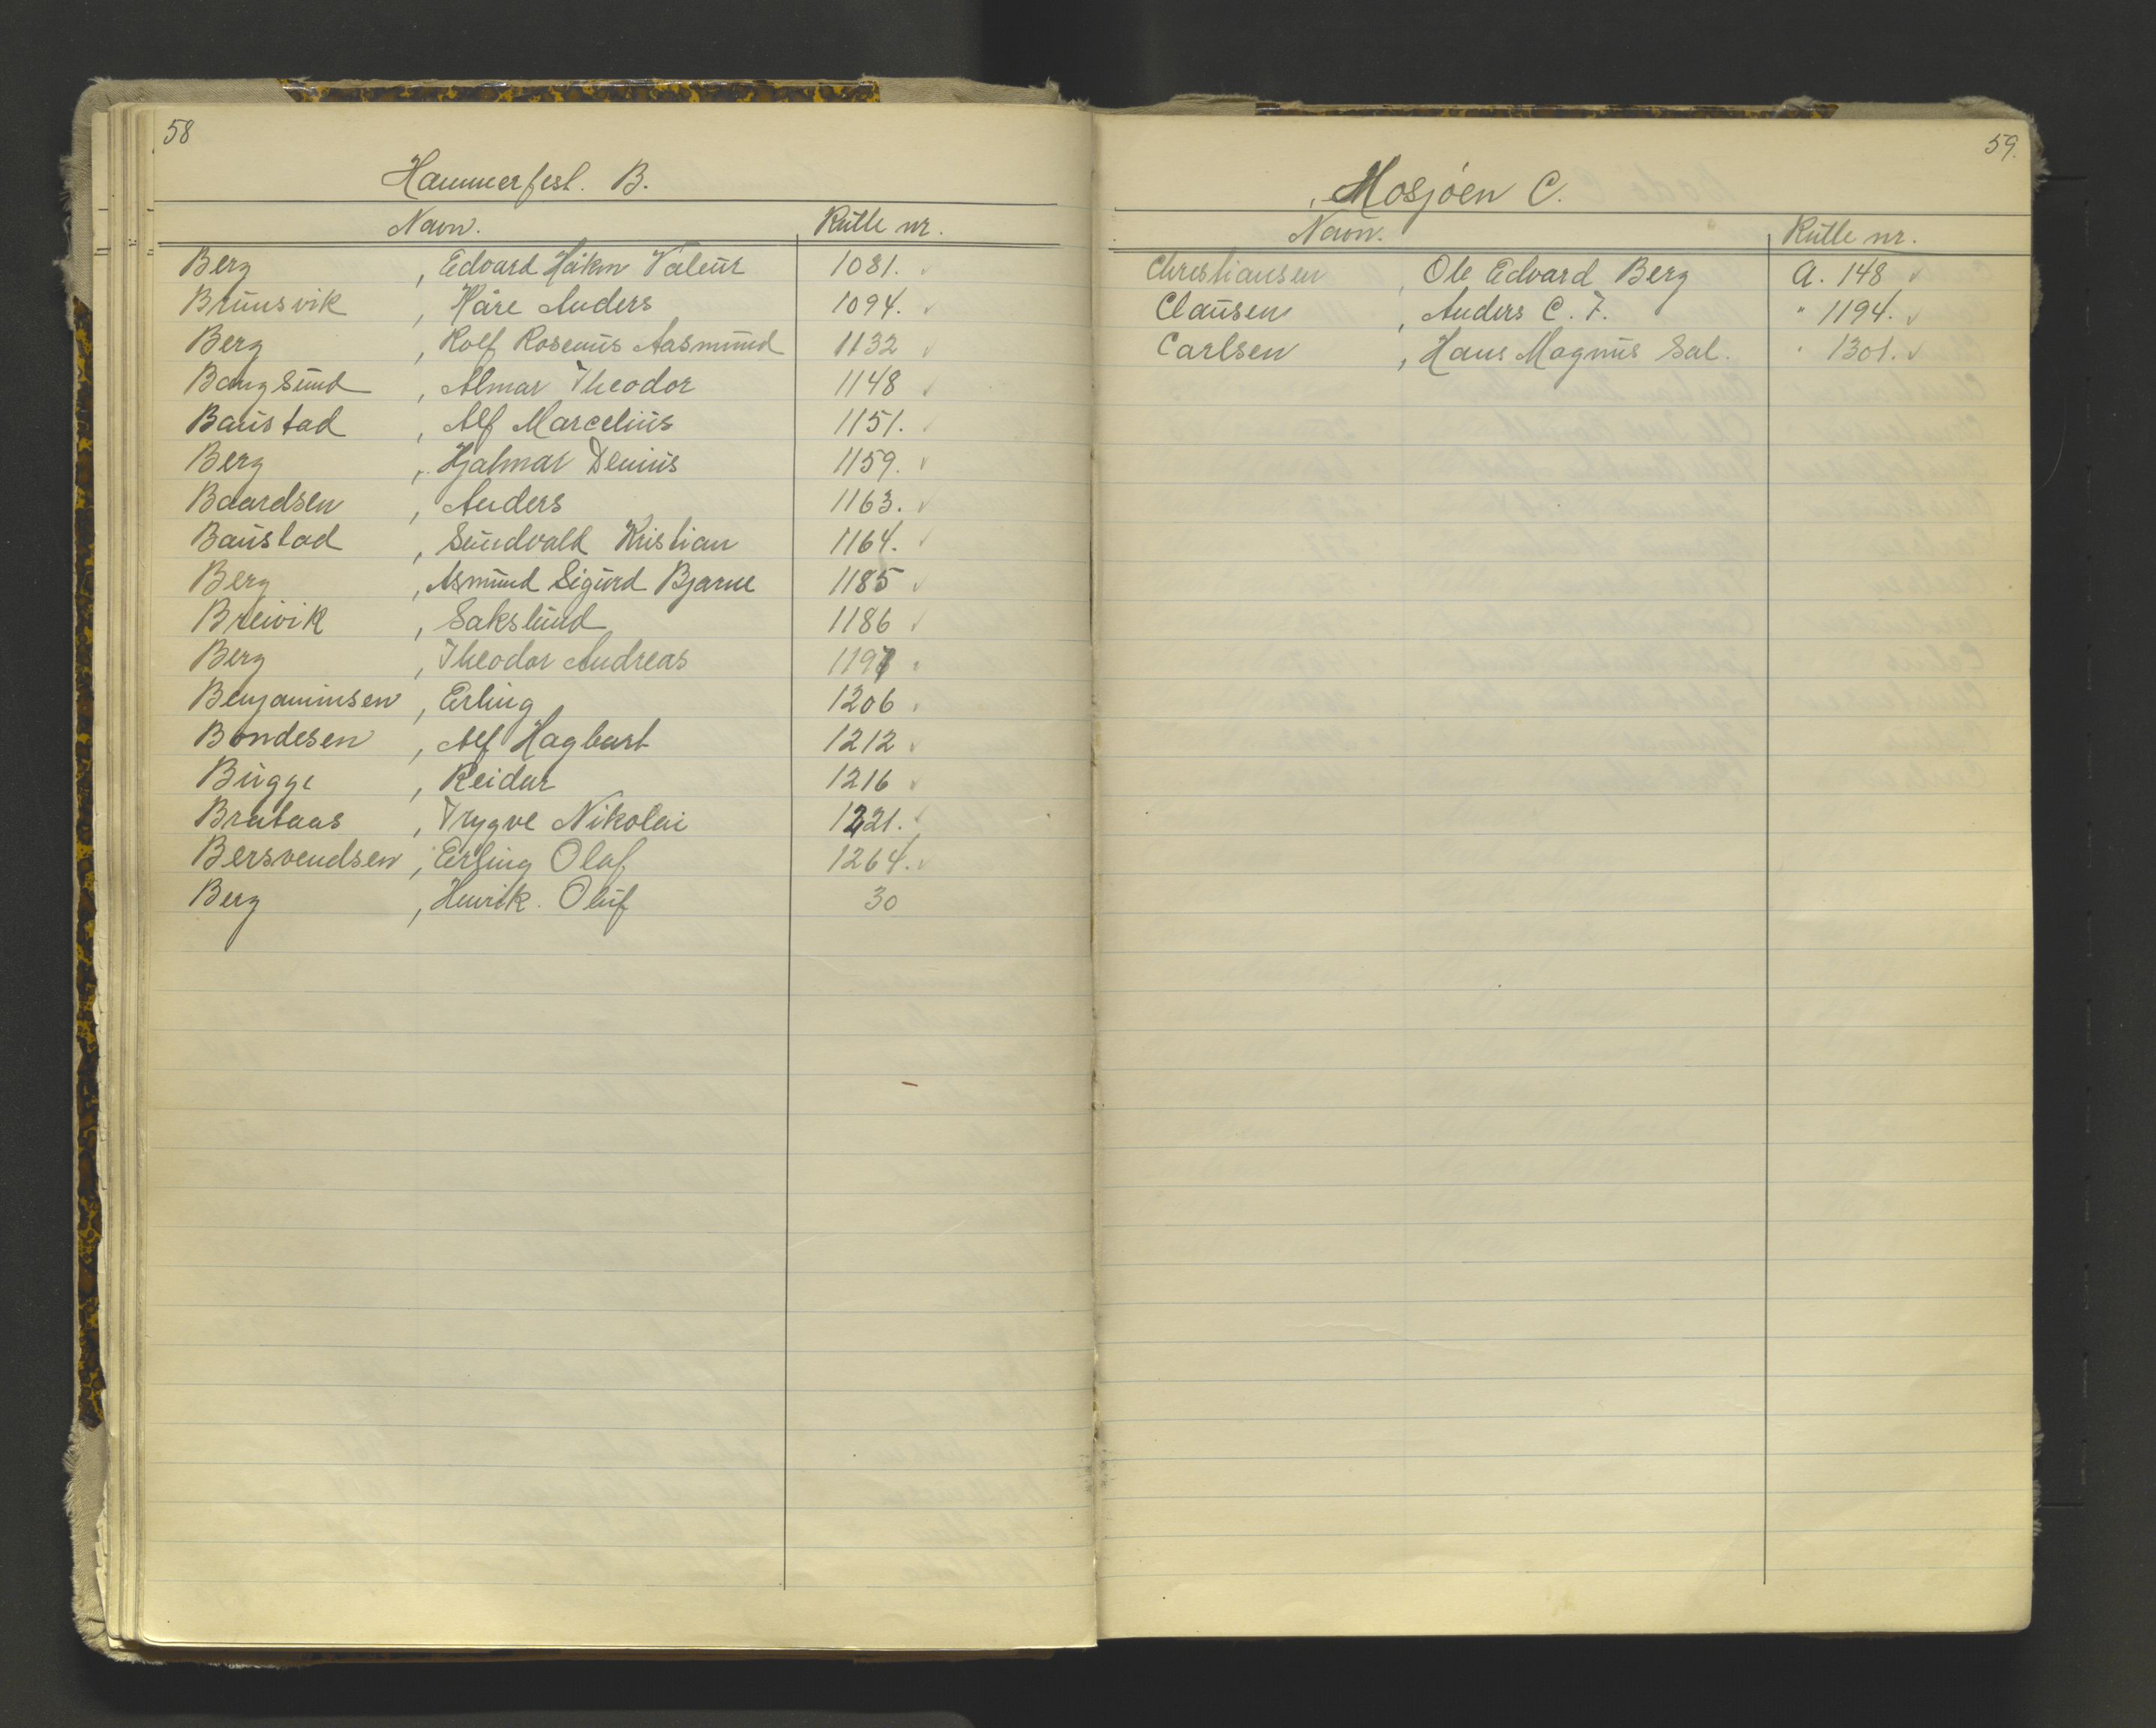 58
Hammerfest. B.
Navn. Rulle nr.
Berg, Edvard Håkon Valeur 1081. ✓
Brunsvik, Kåre Anders 1094. ✓
Berg, Rolf Rosenius Aasmund 1132 ✓
Bangsund, Almar Theodor 1148 ✓
Baustad, Alf Marcelius 1151. ✓
Berg, Hjalmar Denius 1159. ✓
Baardsen, Anders 1163. ✓
Baustad, Sundvald Kristian 1164. ✓
Berg, Asmund Sigurd Bjarne 1185 ✓
Breivik, Sakslund 1186 ✓
Berg, Theodor Andreas
Benjaminsen, Erling 1206
Bondesen, Alf Hagbart 1212 ✓
Bugge, Reidar 1216 ✓
Brataas, Trygve Nikolai 1221. ✓
Bersvendsen, Erling Olaf 1264. ✓
Berg, Henrik. Oluf 30
59.
Mosjøen C.
Navn. Rulle nr.
Christiansen, Ole Edvard Berg A. 148 ✓
Clausen, Anders C. F. " 1194. ✓
Carlsen, Hans Magnus Sal. " 1301. ✓